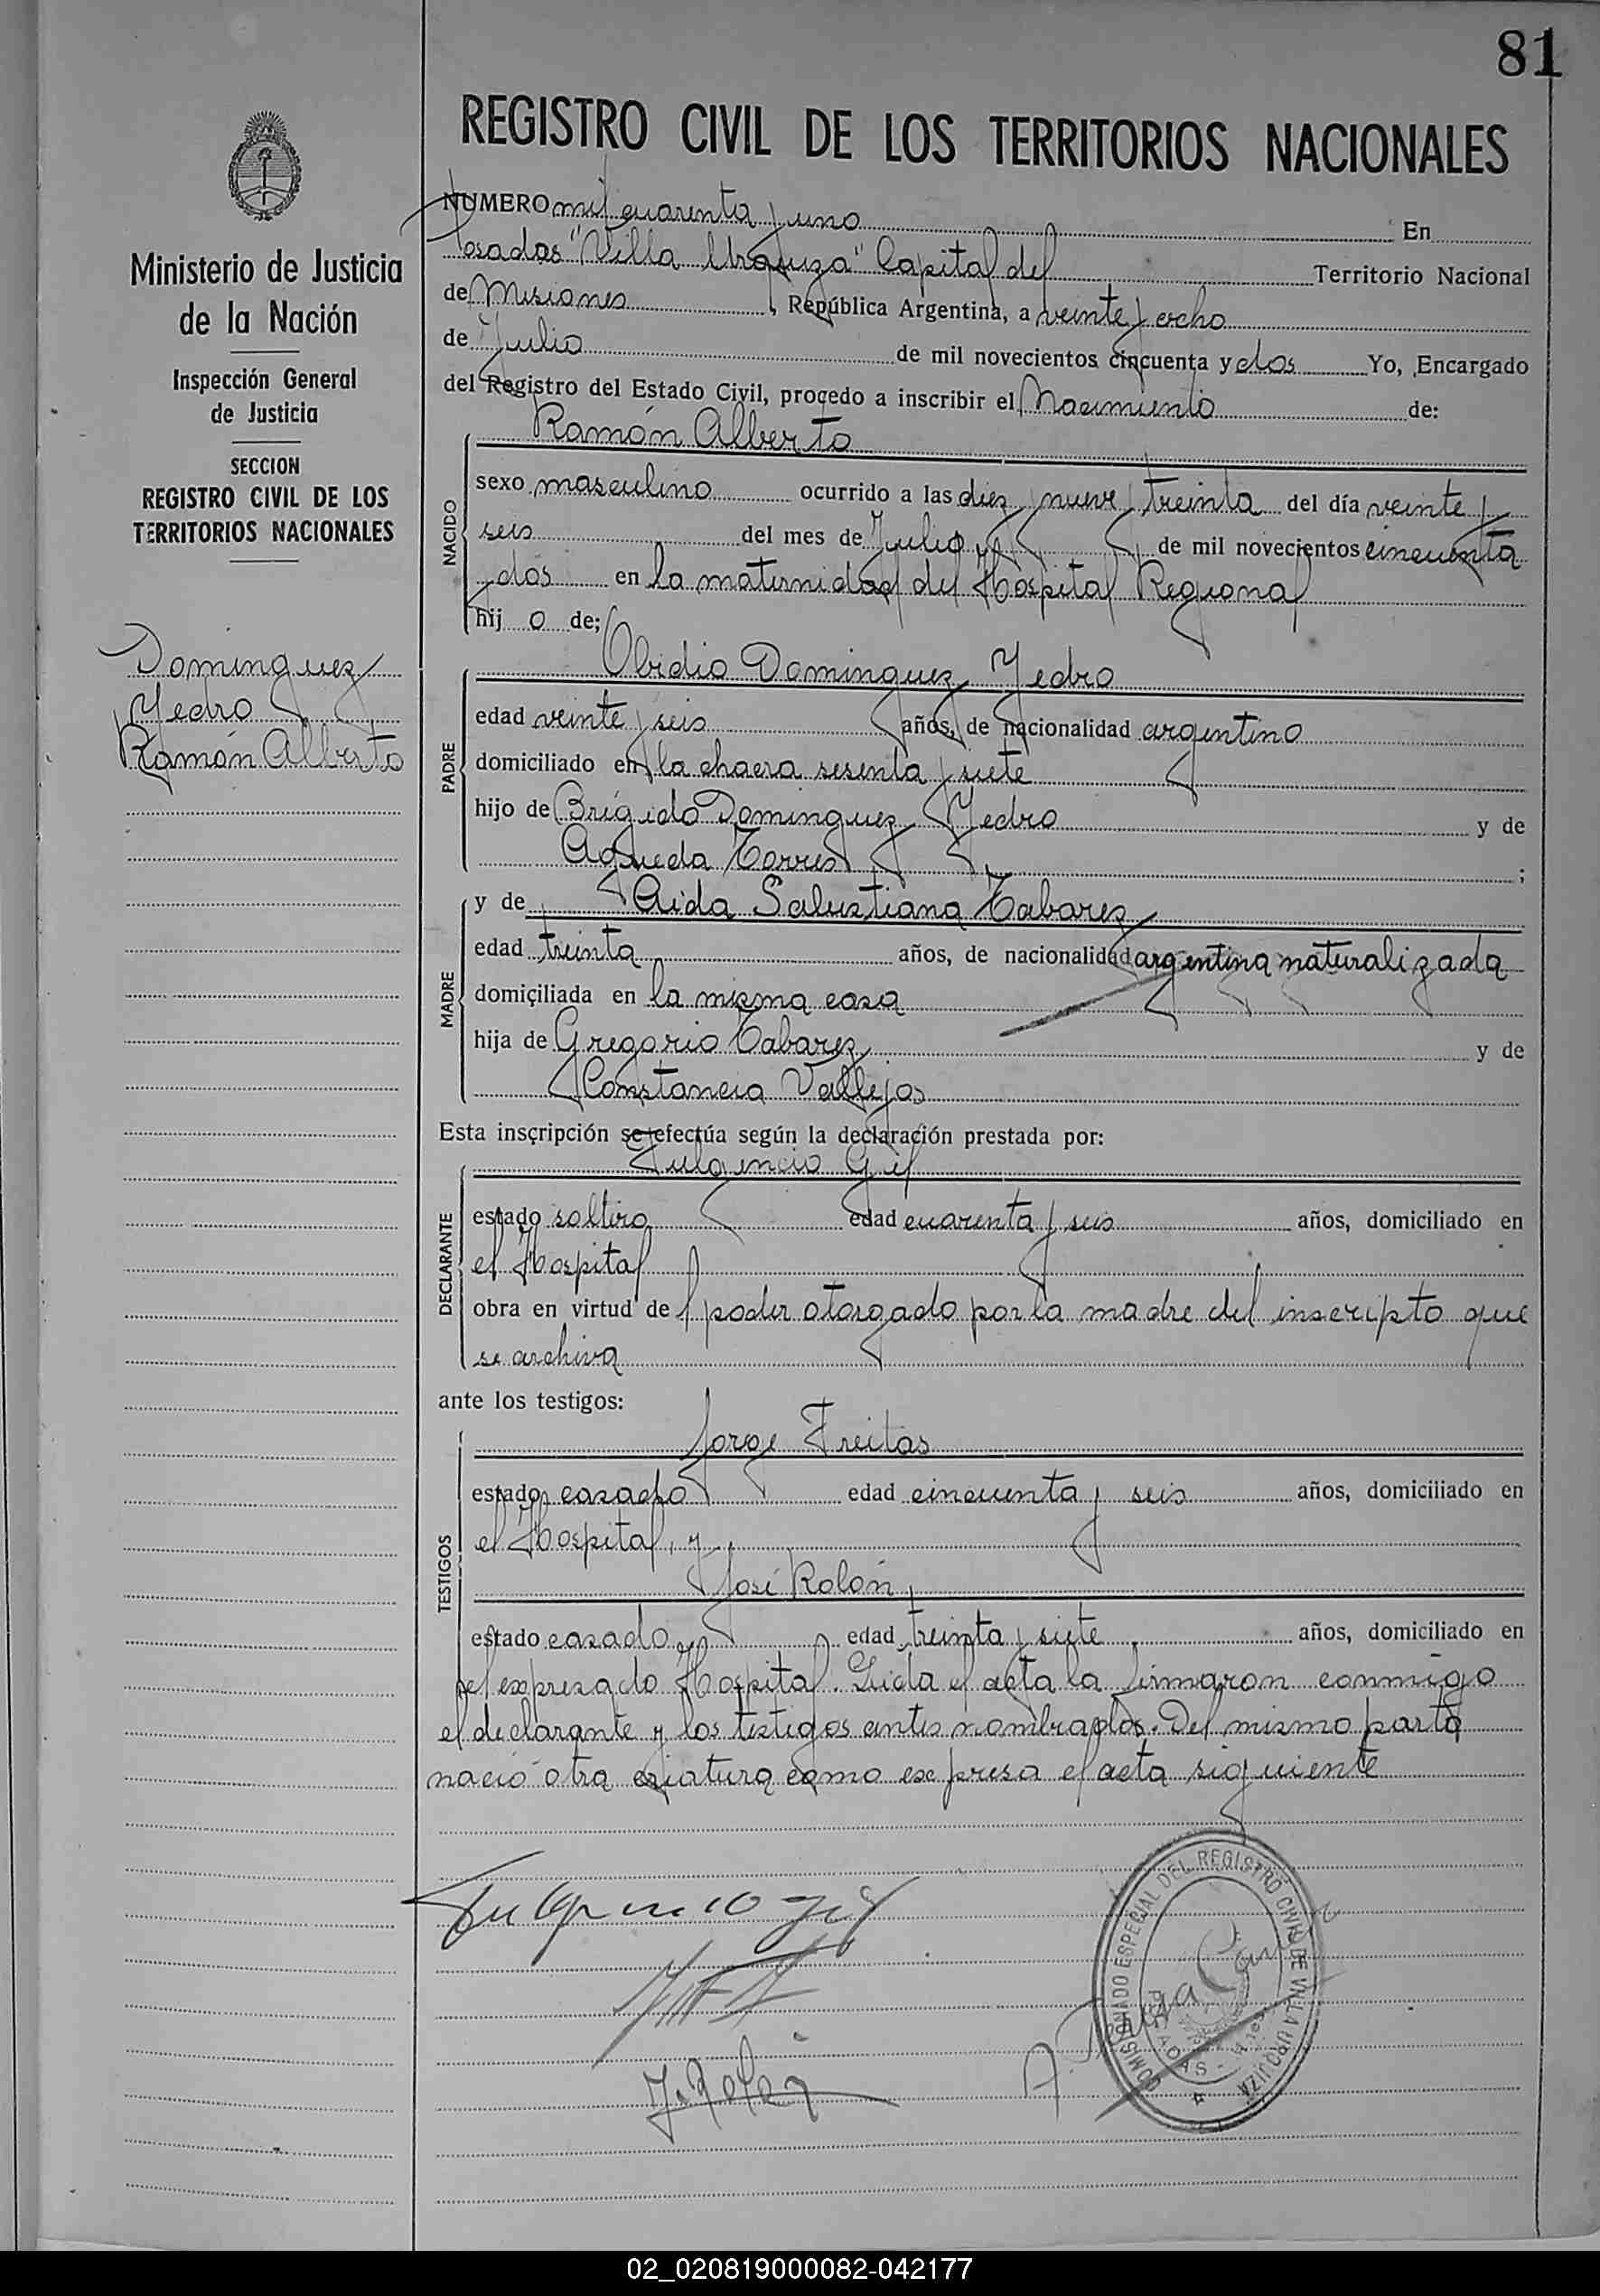 81
REGISTRO CIVIL DE LOS TERRITORIOS NACIONALES
Ministerio de Justicia
de la Nación
Inspección General
de Justicia
SECCION
REGISTRO CIVIL DE LOS
TERRITORIOS NACIONALES
Dominguez
Yedro
Ramón Alberto
NUMERO mil cuarenta y uno En
Posadas "Villa Urquiza" Capital del Territorio Nacional
de Misiones, República Argentina, a veinte y ocho
de Julio de mil novecientos cincuenta y dos Yo, Encargado
del Registro del Estado Civil, procedo a inscribir el Nacimiento de:
NACIDO
Ramón Alberto
sexo masculino ocurrido a las diez y nueve y treinta del día veinte y
seis del mes de Julio de mil novecientos cincuenta
y dos en la maternidad del Hospital Regional
hij o de;
PADRE
Obidio Dominguez Yedro
edad veinte y seis años, de nacionalidad argentino
domiciliado en la chacra sesenta y siete
hijo de Brígido Dominguez Yedro y de
Agueda Torres ;
MADRE
y de Aida Salustiana Tabarez
edad treinta años, de nacionalidad argentina naturalizada
domiciliada en la misma casa
hija de Gregorio Tabarez y de
Constancia Vallejos
Esta inscripción se efectúa según la declaración prestada por:
DECLARANTE
Fulgencio Gil
estado soltero edad cuarenta y seis años, domiciliado en
el Hospital
obra en virtud de poder otorgado por la madre del inscripto que
se archiva
ante los testigos:
TESTIGOS
Jorge Freitas
estado casado edad cincuenta y seis años, domiciliado en
el Hospital, y
José Rolón,
estado casado edad treinta y siete, años, domiciliado en
el expresado Hospital. Leida el acta la firmaron conmigo
el declarante y los testigos antes nombrados. Del mismo parto
nació otra criatura como expresa el acta siguiente
Fulgencio Gil
J. Rolón
COMISIONADO ESPECIAL DEL REGISTRO CIVIL DE VILLA URQUIZA
02_020819000082-042177